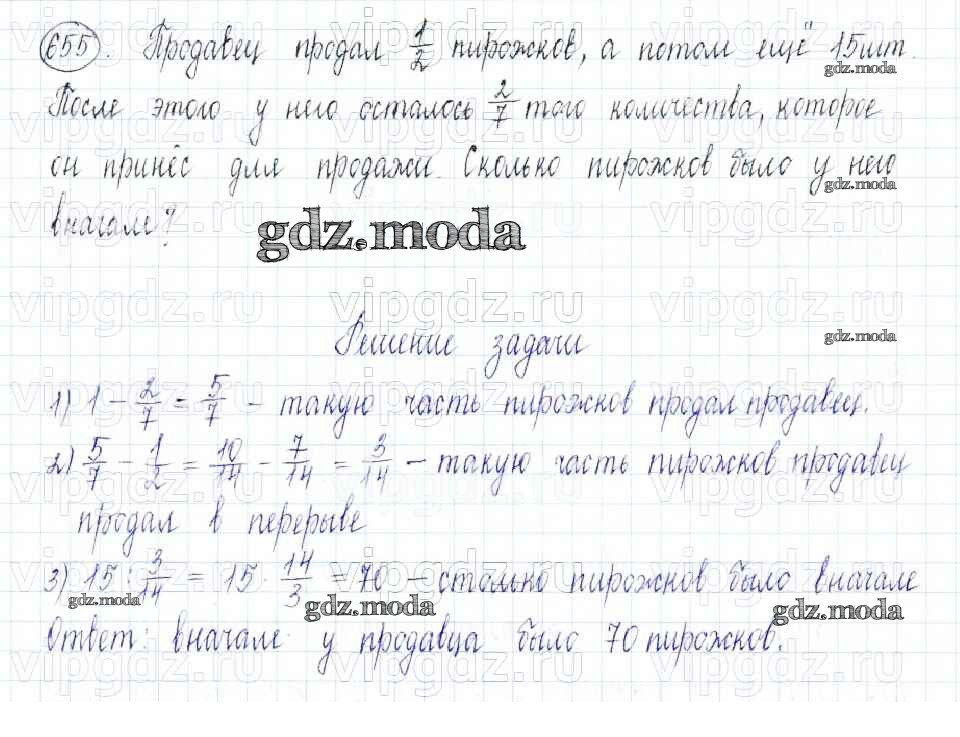 655. Продавец продал 1/2 пирожков, а потом ещё 15 шт.
После этого у него осталось 2/7 того количества, которое
он принёс для продажи. Сколько пирожков было у него
вначале?
gdz.moda
Решение задачи
1) 1 - 2/7 = 5/7 - такую часть пирожков продал продавец.
2) 5/7 - 1/2 = 10/14 - 7/14 = 3/14 - такую часть пирожков продавец
продал в перерыве
3) 15 : 3/14 = 15 · 14/3 = 70 - столько пирожков было вначале
Ответ: вначале у продавца было 70 пирожков.
gdz.moda
vipgdz.ru